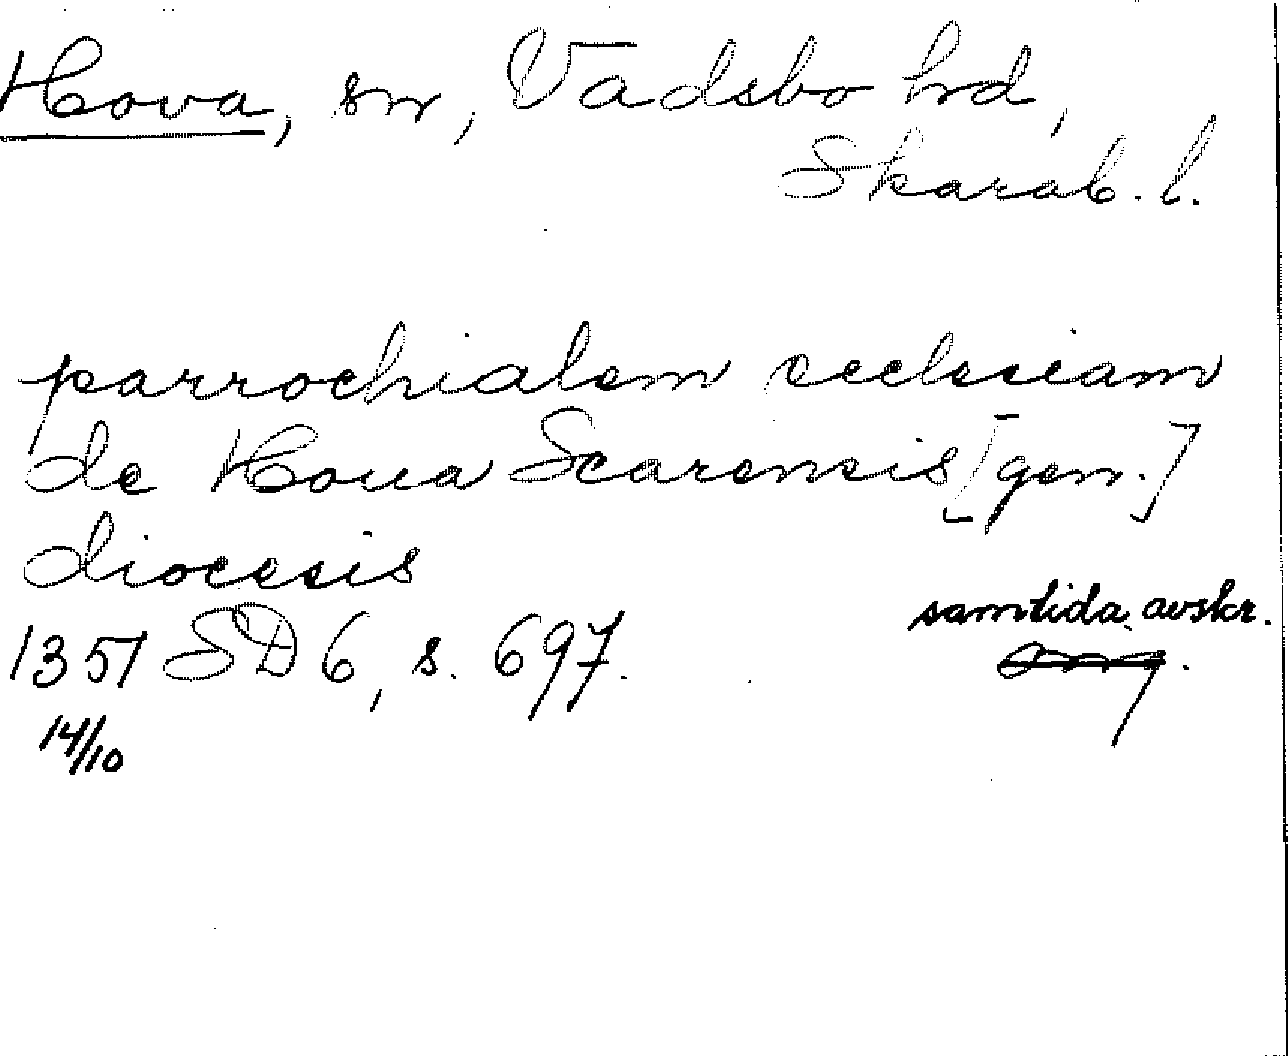 Hova, sn, Vadsbo hd,
Skarab. l.
parrochialem ecclesiam
de Houa Scarensis [gen.]
diocesis
samtida avskr.
1357 SD 6, s. 697.
14/10